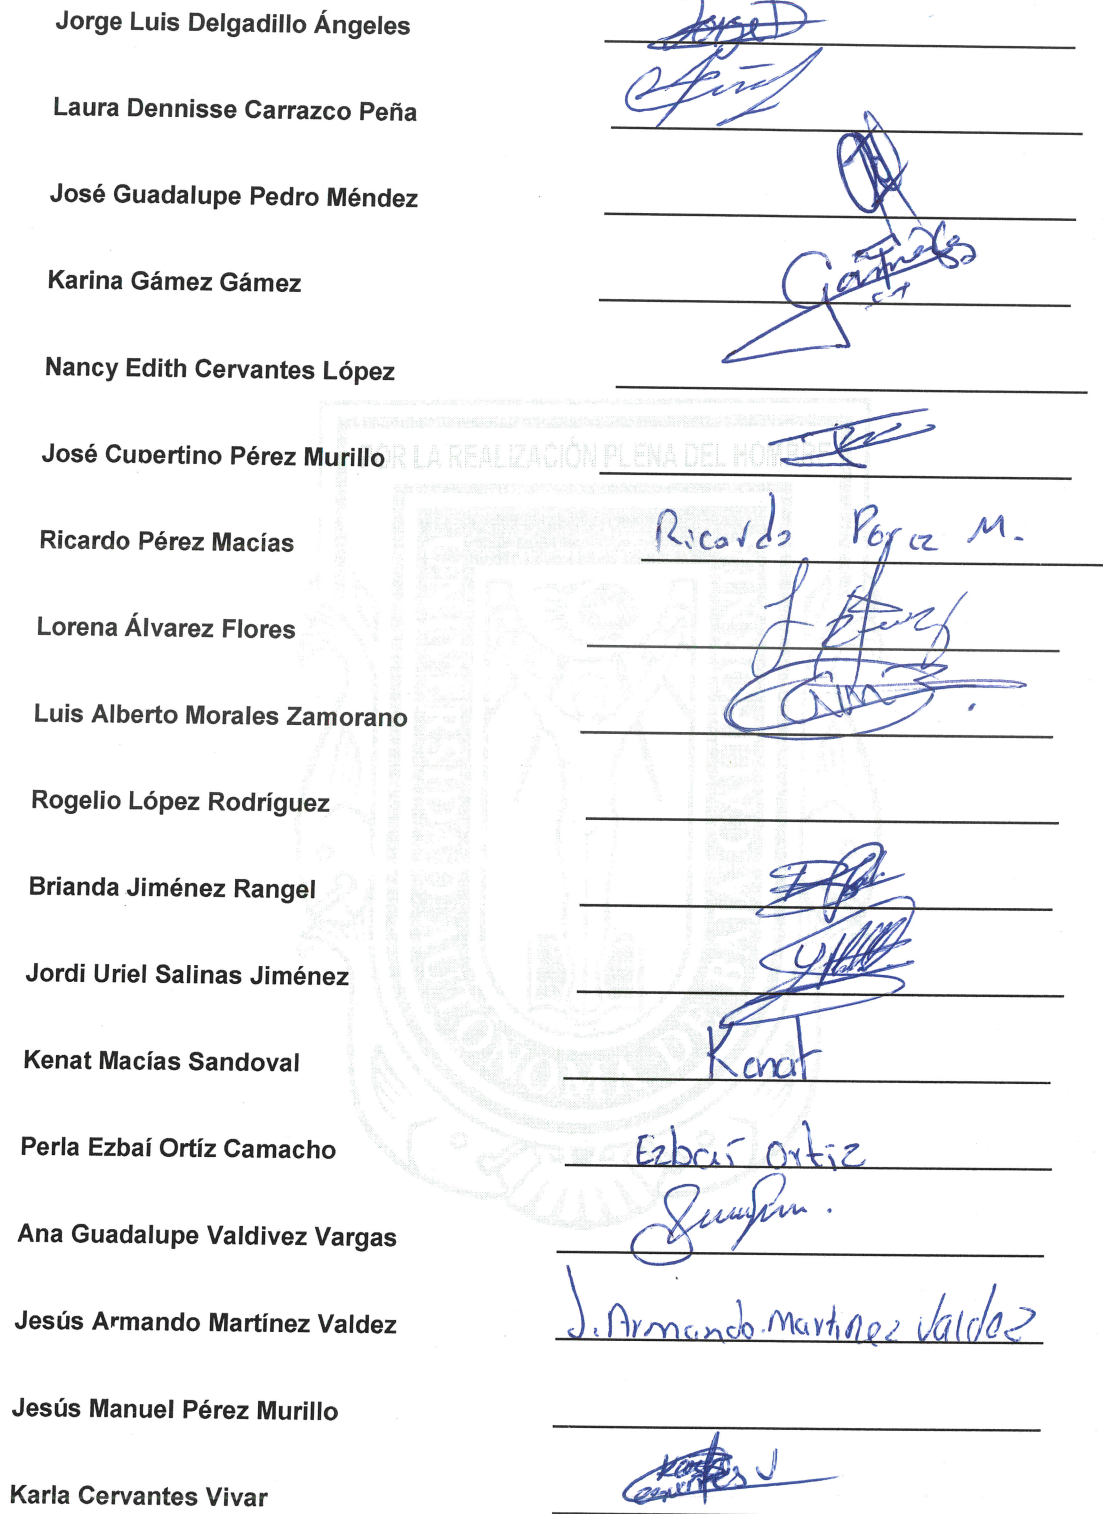 Jorge Luis Delgadillo Ángeles JorgeD
Laura Dennisse Carrazco Peña
José Guadalupe Pedro Méndez
Karina Gámez Gámez
Nancy Edith Cervantes López
POR LA REALIZACIÓN PLENA DEL HOMBRE
José Cupertino Pérez Murillo
Ricardo Pérez Macías Ricardo Perez M.
Lorena Álvarez Flores
Luis Alberto Morales Zamorano
Rogelio López Rodríguez
Brianda Jiménez Rangel
Jordi Uriel Salinas Jiménez
Kenat Macías Sandoval Kenat
Perla Ezbaí Ortíz Camacho Ezbaí Ortiz
Ana Guadalupe Valdivez Vargas
Jesús Armando Martínez Valdez J. Armando. Martinez Valdez
Jesús Manuel Pérez Murillo
Karla Cervantes Vivar